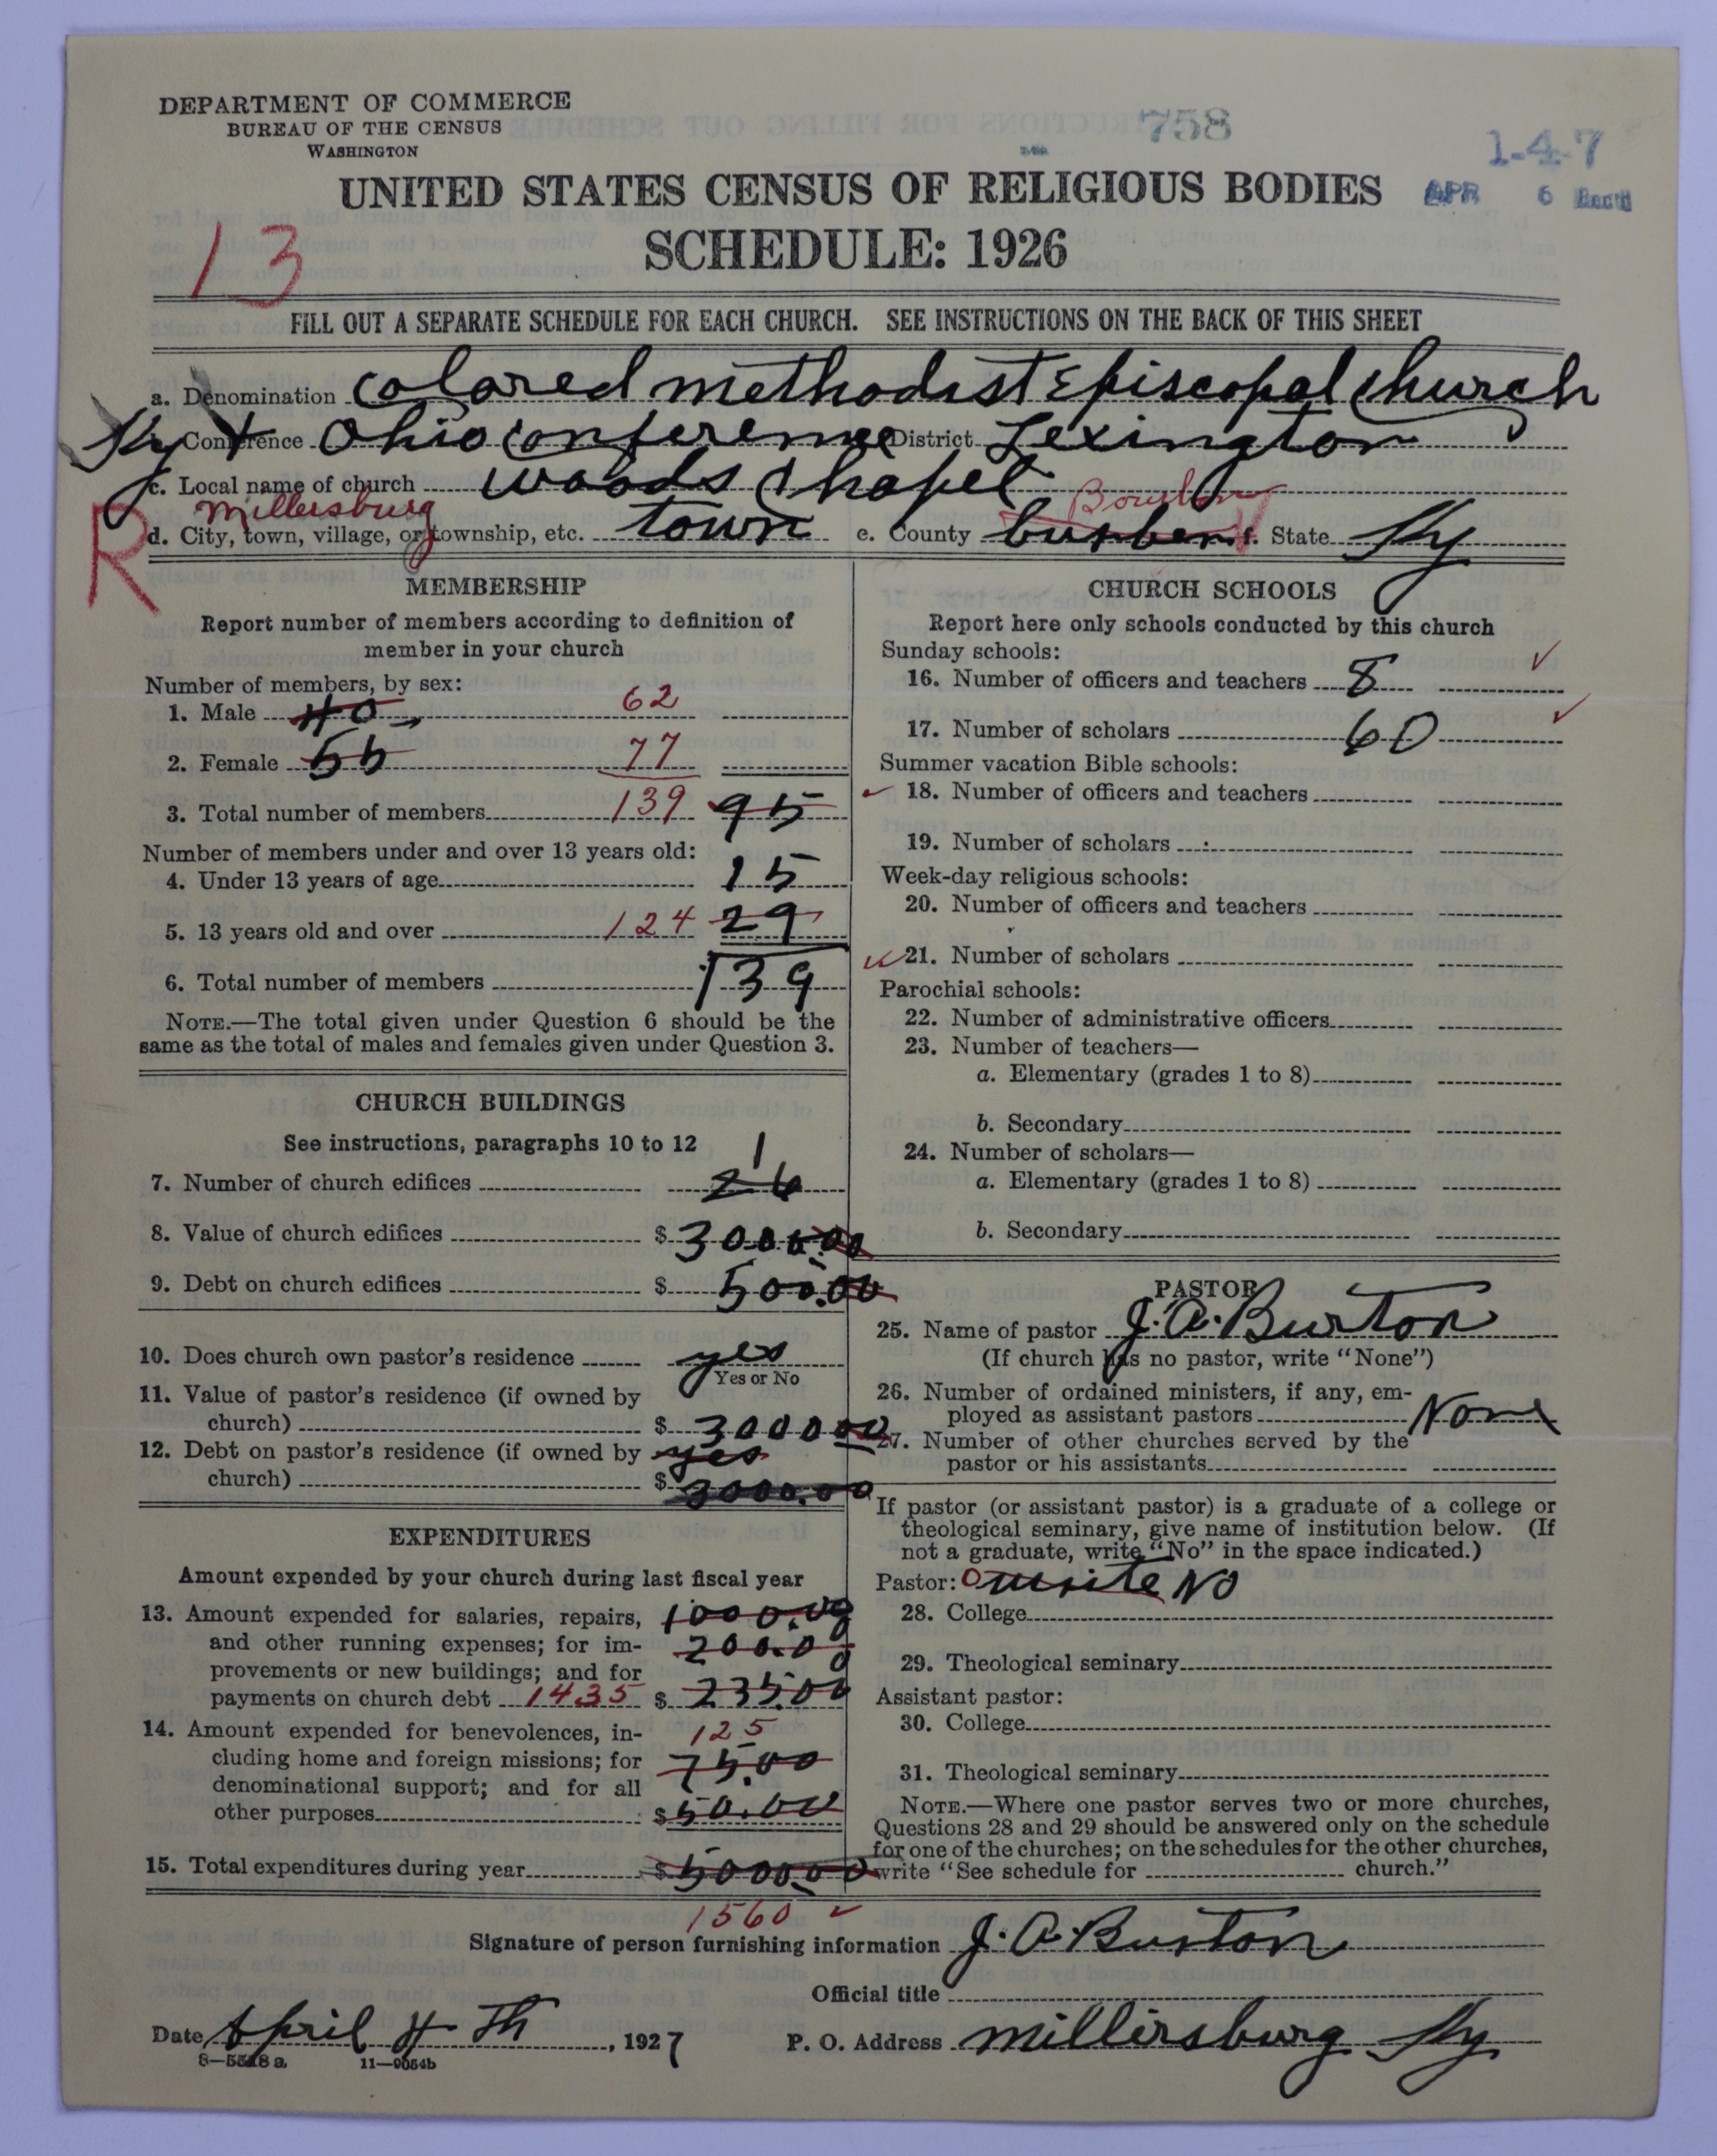 DEPARTMENT OF COMMERCE
BUREAU OF THE CENSUS
WASHINGTON
758
1-4-7
UNITED STATES CENSUS OF RELIGIOUS BODIES
APR 6 Rec'd
SCHEDULE: 1926
13
FILL OUT A SEPARATE SCHEDULE FOR EACH CHURCH. SEE INSTRUCTIONS ON THE BACK OF THIS SHEET
a. Denomination Colored methodist Episcopal Church
Ky + Conference Ohio Conference District Lexington
c. Local name of church woods Chapel
R
millersburg
Bourbon
d. City, town, village, or township, etc. town e. County f. State Ky
MEMBERSHIP
Report number of members according to definition of
member in your church
Number of members, by sex:
1. Male 40 62
2. Female 55 77
3. Total number of members 139 95
Number of members under and over 13 years old:
4. Under 13 years of age 15
5. 13 years old and over 124 29
6. Total number of members 139
NOTE.—The total given under Question 6 should be the
same as the total of males and females given under Question 3.
CHURCH BUILDINGS
See instructions, paragraphs 10 to 12
1
7. Number of church edifices
8. Value of church edifices $ 3000.00
9. Debt on church edifices $ 500.00
10. Does church own pastor's residence yes
Yes or No
11. Value of pastor's residence (if owned by
church) $ 3000 00
12. Debt on pastor's residence (if owned by yes
church) $ 3000.00
EXPENDITURES
Amount expended by your church during last fiscal year
13. Amount expended for salaries, repairs, 1000.00
and other running expenses; for im- 200.00
provements or new buildings; and for
payments on church debt 1435 $ 235.00
14. Amount expended for benevolences, in- 125
cluding home and foreign missions; for 75.00
denominational support; and for all
other purposes $ 50.00
15. Total expenditures during year $ 5000.00
1560
CHURCH SCHOOLS
Report here only schools conducted by this church
Sunday schools:
16. Number of officers and teachers 8
17. Number of scholars 60
Summer vacation Bible schools:
18. Number of officers and teachers
19. Number of scholars
Week-day religious schools:
20. Number of officers and teachers
21. Number of scholars
Parochial schools:
22. Number of administrative officers
23. Number of teachers—
a. Elementary (grades 1 to 8)
b. Secondary
24. Number of scholars—
a. Elementary (grades 1 to 8)
b. Secondary
PASTOR
25. Name of pastor J. A. Burton
(If church has no pastor, write "None")
26. Number of ordained ministers, if any, em-
ployed as assistant pastors None
27. Number of other churches served by the
pastor or his assistants
If pastor (or assistant pastor) is a graduate of a college or
theological seminary, give name of institution below. (If
not a graduate, write "No" in the space indicated.)
Pastor: write No
28. College
29. Theological seminary
Assistant pastor:
30. College
31. Theological seminary
NOTE.—Where one pastor serves two or more churches,
Questions 28 and 29 should be answered only on the schedule
for one of the churches; on the schedules for the other churches,
write "See schedule for church."
Signature of person furnishing information J. A. Burton
Official title
Date April 4 Th, 1927 P. O. Address millersburg Ky
8—5518 a 11—9054b